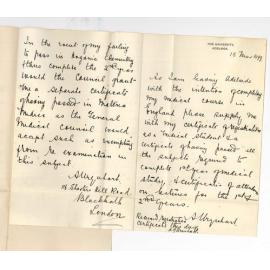 THE UNIVERSITY,
ADELAIDE.
15 Mar 1899
As I am leaving Adelaide
with the intention of completing
my medical course in
England please supply me
with my certificate of registration
as medical student & a
certificate of having passed all
the subjects required to
complete 1st year of medical
study, & certificates of attendance
on lectures for the 1st &
2nd years.
A Urquhart
Received
certificates
In the event of my failing
to pass in Inorganic Chemistry
& thus complete the 2nd year
would the Council grant
me a separate certificate
of having passed in Materia
Medica as the General
Medical Council would
accept such as exempting
from re examination in
this subject
A Urquhart
Hill Road
Blackheath
London